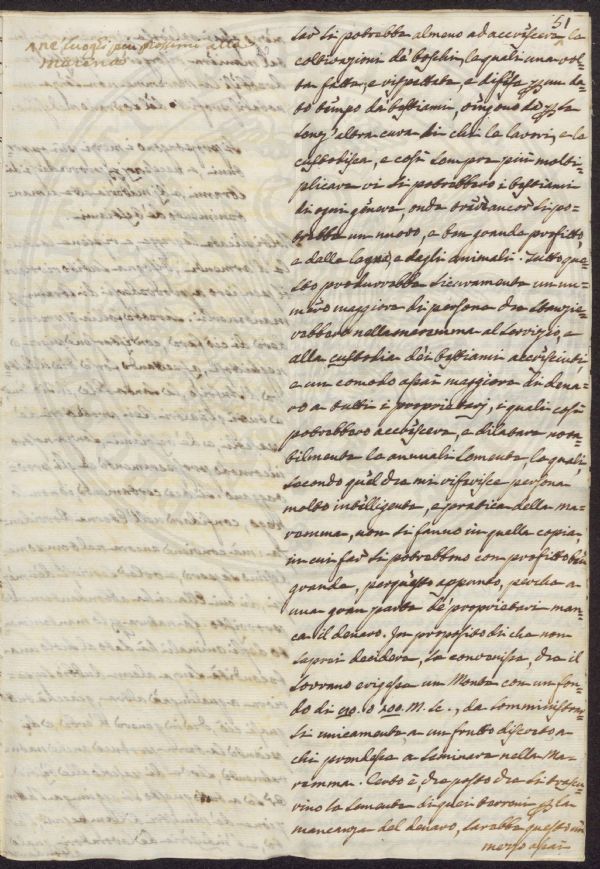 51
n ne' luoghi più prossimi alla
marena
far si potrebbe almeno ad accrescere la
coltivazioni de' boschi, le quali una vol-
ta fatte, e rispettate, e difese per un da-
to tempo da' bestiami, vengono da per se
senz' altra cura di chi le lavori, e le
custodisca, e così sempre più molti-
plicare vi si potrebbero i bestiami
di ogni genere, onde trar ancor si po-
trebbe un nuovo, e ben grande profitto,
e dalle legna, e dagli animali. Tutto que-
sto produrrebbe sicuramente un nu-
mero maggiore di persone che
nella maremma al servizio, e
alla custodia de' i bestiami accresciuti,
e un comodo assai maggiore di dena-
ro a tutti i proprietarj, i quali così
potrebbero accrescere, e dilatare nota-
bilmente le annuali semente, le quali,
secondo quel che mi riferisce persona
molto intelligente, e pratica della ma-
remma, non si fanno in quella copia,
in cui far si potrebbono con profitto ben
grande, per questo appunto, perchè a
una gran parte de' proprietari man-
ca il denaro. In proposito di che non
saprei decidere, se convenisse, che il
Sovrano erigesse un Monte con un fon-
do di 150. o 200. M. sc., da somministrar-
si unicamente a un frutto discreto a
chi prendesse a seminare nella Ma-
remma. Certo è, che posto che si trascu-
rino le semente di quei terreni per la
mancanza del denaro, sarebbe questo un
mezzo assai